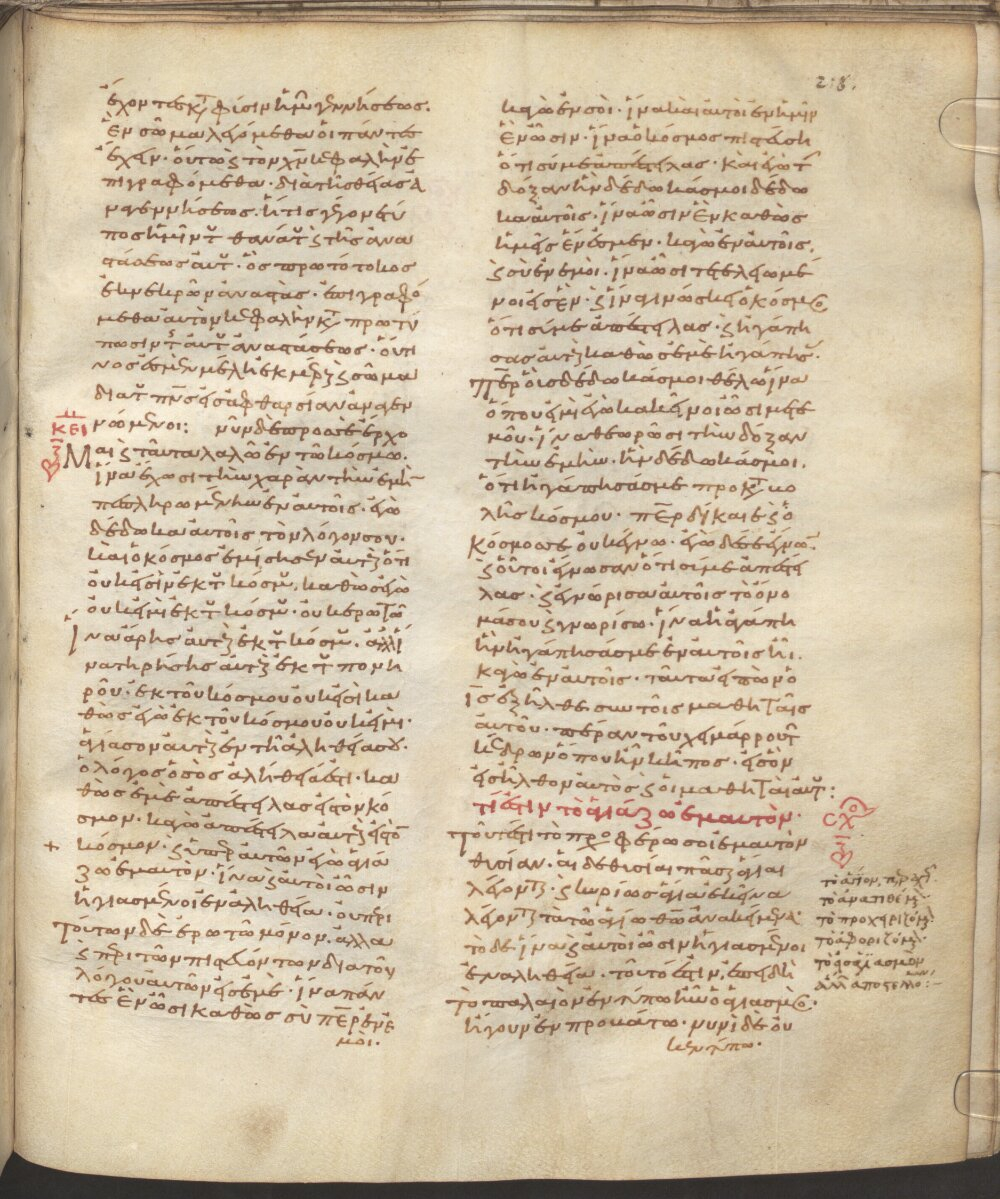 218.
ἔχοντες κατὰ φύσιν ἡμῶν γεννήσεως.
ἓν σῶμα λεγόμεθα οἱ πάντες
ἔχειν· οὕτως τὸν χν κεφαλὴν ἐ
πιγραφόμεθα· διὰ τῆς θείας ἀ
ναγεννήσεως· ἥτις γέγονεν
ἡμῖν τοῦ θανάτου καὶ τῆς ἀνα
στάσεως αὐτοῦ· ὃς πρωτότοκος
ἐκ νεκρῶν ἀναστὰς· ἐπιγραφό
μεθα αὐτὸν κεφαλὴν κατὰ
τῆς αὐτοῦ ἀναστάσεως·
σῶμα
διὰ τοῦ πνς εἰς ἀφθαρσίαν ἀναγεν
νώμενοι: νῦν δὲ πρὸς σὲ ἔρχο
κει
μαι καὶ ταῦτα λαλῶ ἐν τῷ κόσμῳ.
ἵνα ἔχωσι τὴν χαρὰν τὴν ἐμὴν
πεπληρωμένην ἐν αὐτοῖς· ἐγὼ
δέδωκα αὐτοῖς τὸν λόγον σου·
καὶ ὁ κόσμος ἐμίσησεν αὐτοὺς ὅτι
οὐκ εἰσὶν ἐκ τοῦ κόσμου, καθὼς ἐγὼ
οὐκ εἰμὶ ἐκ τοῦ κόσμου· οὐκ ἐρωτῶ
ἵνα ἄρης αὐτοὺς ἐκ τοῦ κόσμου· ἀλλ' ἵ
να τηρήσης αὐτοὺς ἐκ τοῦ πονη
ροῦ· ἐκ τοῦ κόσμου οὐκ εἰσὶ κα
θὼς ἐγὼ ἐκ τοῦ κόσμου οὐκ εἰμί·
ἁγίασον αὐτοὺς ἐν τῇ ἀληθείᾳ σου·
ὁ λόγος ὁ σὸς ἀλήθειά ἐστι· κα
θὼς ἐμὲ ἀπέστειλας εἰς τὸν κό
σμον· κἀγὼ ἀπέστειλα αὐτοὺς εἰς τὸν
+ κόσμον· καὶ ὑπὲρ αὐτῶν ἐγὼ ἁγιά
ζω ἐμαυτὸν· ἵνα καὶ αὐτοὶ ὦσιν
ἡγιασμένοι ἐν ἀληθείᾳ· οὐ περὶ
τούτων δὲ ἐρωτῶ μόνον, ἀλλὰ
καὶ περὶ τῶν πιστευόντων διὰ τοῦ
λόγου αὐτῶν εἰς ἐμὲ· ἵνα πάν
τες ἓν ὦσι καθὼς σὺ περ ἐν ἐ
μοὶ·
κἀγὼ ἐν σοὶ· ἵνα καὶ αὐτοὶ ἐν ἡμῖν
ἓν ὦσιν· ἵνα ὁ κόσμος πιστεύσῃ
ὅτι σύ με ἀπέστειλας· καὶ ἐγὼ τὴν
δόξαν ἣν δέδωκάς μοι δέδω
κα αὐτοῖς· ἵνα ὦσιν ἓν καθὼς
ἡμεῖς ἕν ἐσμεν· κἀγὼ ἐν αὐτοῖς,
καὶ σὺ ἐν ἐμοὶ· ἵνα ὦσι τετελειωμέ
νοι εἰς ἓν· καὶ ἵνα γινώσκῃ ὁ κόσμος
ὅτι σύ με ἀπέστειλας· καὶ ἠγάπη
σας αὐτοὺς καθὼς ἐμὲ ἠγάπησας·
περ οὓς δέδωκάς μοι θέλω ἵνα
ὅπου εἰμὶ ἐγὼ κἀκεῖνοι ὦσι μετ'
ἐμοῦ· ἵνα θεωρῶσι τὴν δόξαν
τὴν ἐμὴν· ἣν δέδωκάς μοι.
ὅτι ἠγάπησάς με πρὸ κατα βο
λῆς κόσμου· περ δίκαιε καὶ ὁ
κόσμος σε οὐκ ἔγνω· ἐγὼ δέ σε ἔγνων·
καὶ οὗτοι ἔγνωσαν ὅτι σύ με ἀπέστει
λας· καὶ ἐγνώρισα αὐτοῖς τὸ ὄνο
μά σου καὶ γνωρίσω· ἵνα ἡ ἀγάπη
ἣν ἠγάπησάς με ἐν αὐτοῖς ᾖ.
κἀγὼ ἐν αὐτοῖς· ταῦτα εἰπὼν ὁ
ις ἐξῆλθε συν τοῖς μαθηταῖς
αὐτοῦ· πέραν τοῦ χειμάρρου τοῦ
κέδρων ὅπου ἦν κῆπος· εἰς ὃν
εἰσῆλθον αὐτὸς καὶ οἱ μαθηταὶ αὐτοῦ:
τί ἐστιν τὸ ἁγιάζω ἐμαυτὸν·
τουτέστι τὸ προσφέρω σοι ἐμαυτὸν
θυσίαν· αἱ δὲ θυσίαι πᾶσαι ἅγιαι
λέγονται· καὶ κυρίως ἅγια ἐκεῖνα
λέγονται τὰ τῷ ἁγίῳ θῶ ἀνακείμενα·
τὸ δὲ ἵνα καὶ αὐτοὶ ὦσιν ἡγιασμένοι
ἐν ἀληθείᾳ· τοῦτό ἐστιν, ἐπειδὴ
τὸ παλαιὸν ἐν τύπῳ ἦν ὁ ἁγιασμὸς·
ἤγουν ἐν προβάτῳ· νυνὶ δὲ οὐ
κ ἐν τύπῳ·
σχο
τὸ ἅγιον,
τὸ ἀνατιθέμενον
τὸ προχειριζόμενον
τὸ ἀφοριζόμενον